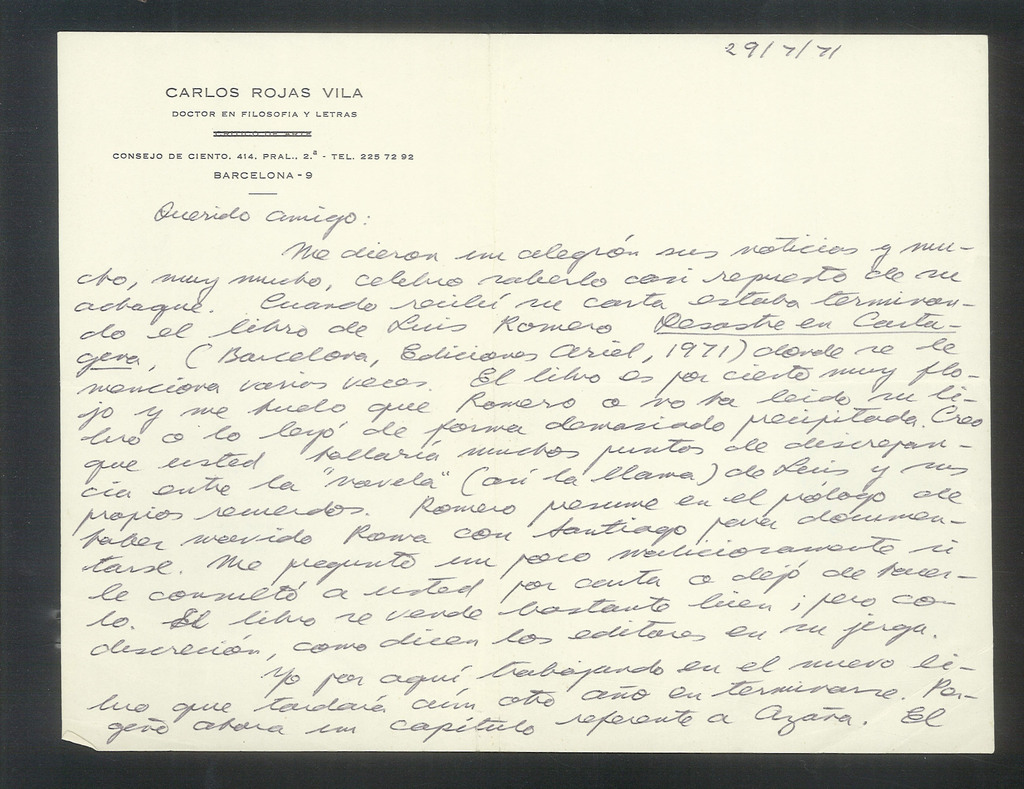 29/7/71
CARLOS ROJAS VILA
DOCTOR EN FILOSOFIA Y LETRAS
CONSEJO DE CIENTO, 414, PRAL., 2.ª - TEL. 225 72 92
BARCELONA - 9
Querido amigo:
Me dieron un alegrón sus noticias y mu-
cho, muy mucho, celebro saberlo casi repuesto de su
achaque. Cuando recibí su carta estaba terminan-
do el libro de Luis Romero Desastre en Carta-
gena, (Barcelona, Ediciones Ariel, 1971) donde se le
menciona varias veces. El libro es por cierto muy flo-
jo y me huelo que Romero o no ha leido su li-
bro o lo leyó de forma demasiado precipitada. Creo
que usted hallaría muchos puntos de discrepan-
cia entre la "novela" (así la llama) de Luis y sus
propios recuerdos. Romero presume en el prólogo de
haber movido Roma con Santiago para documen-
tarse. Me pregunto un poco maliciosamente si
le consultó a usted por carta o dejó de hacer-
lo. El libro se vende bastante bien; pero co-
discreción, como dicen los editores en su jerga.
Yo por aquí trabajando en el nuevo li-
bro que tardará aún otro año en terminarse. Per-
geño ahora un capítulo referente a Azaña. El